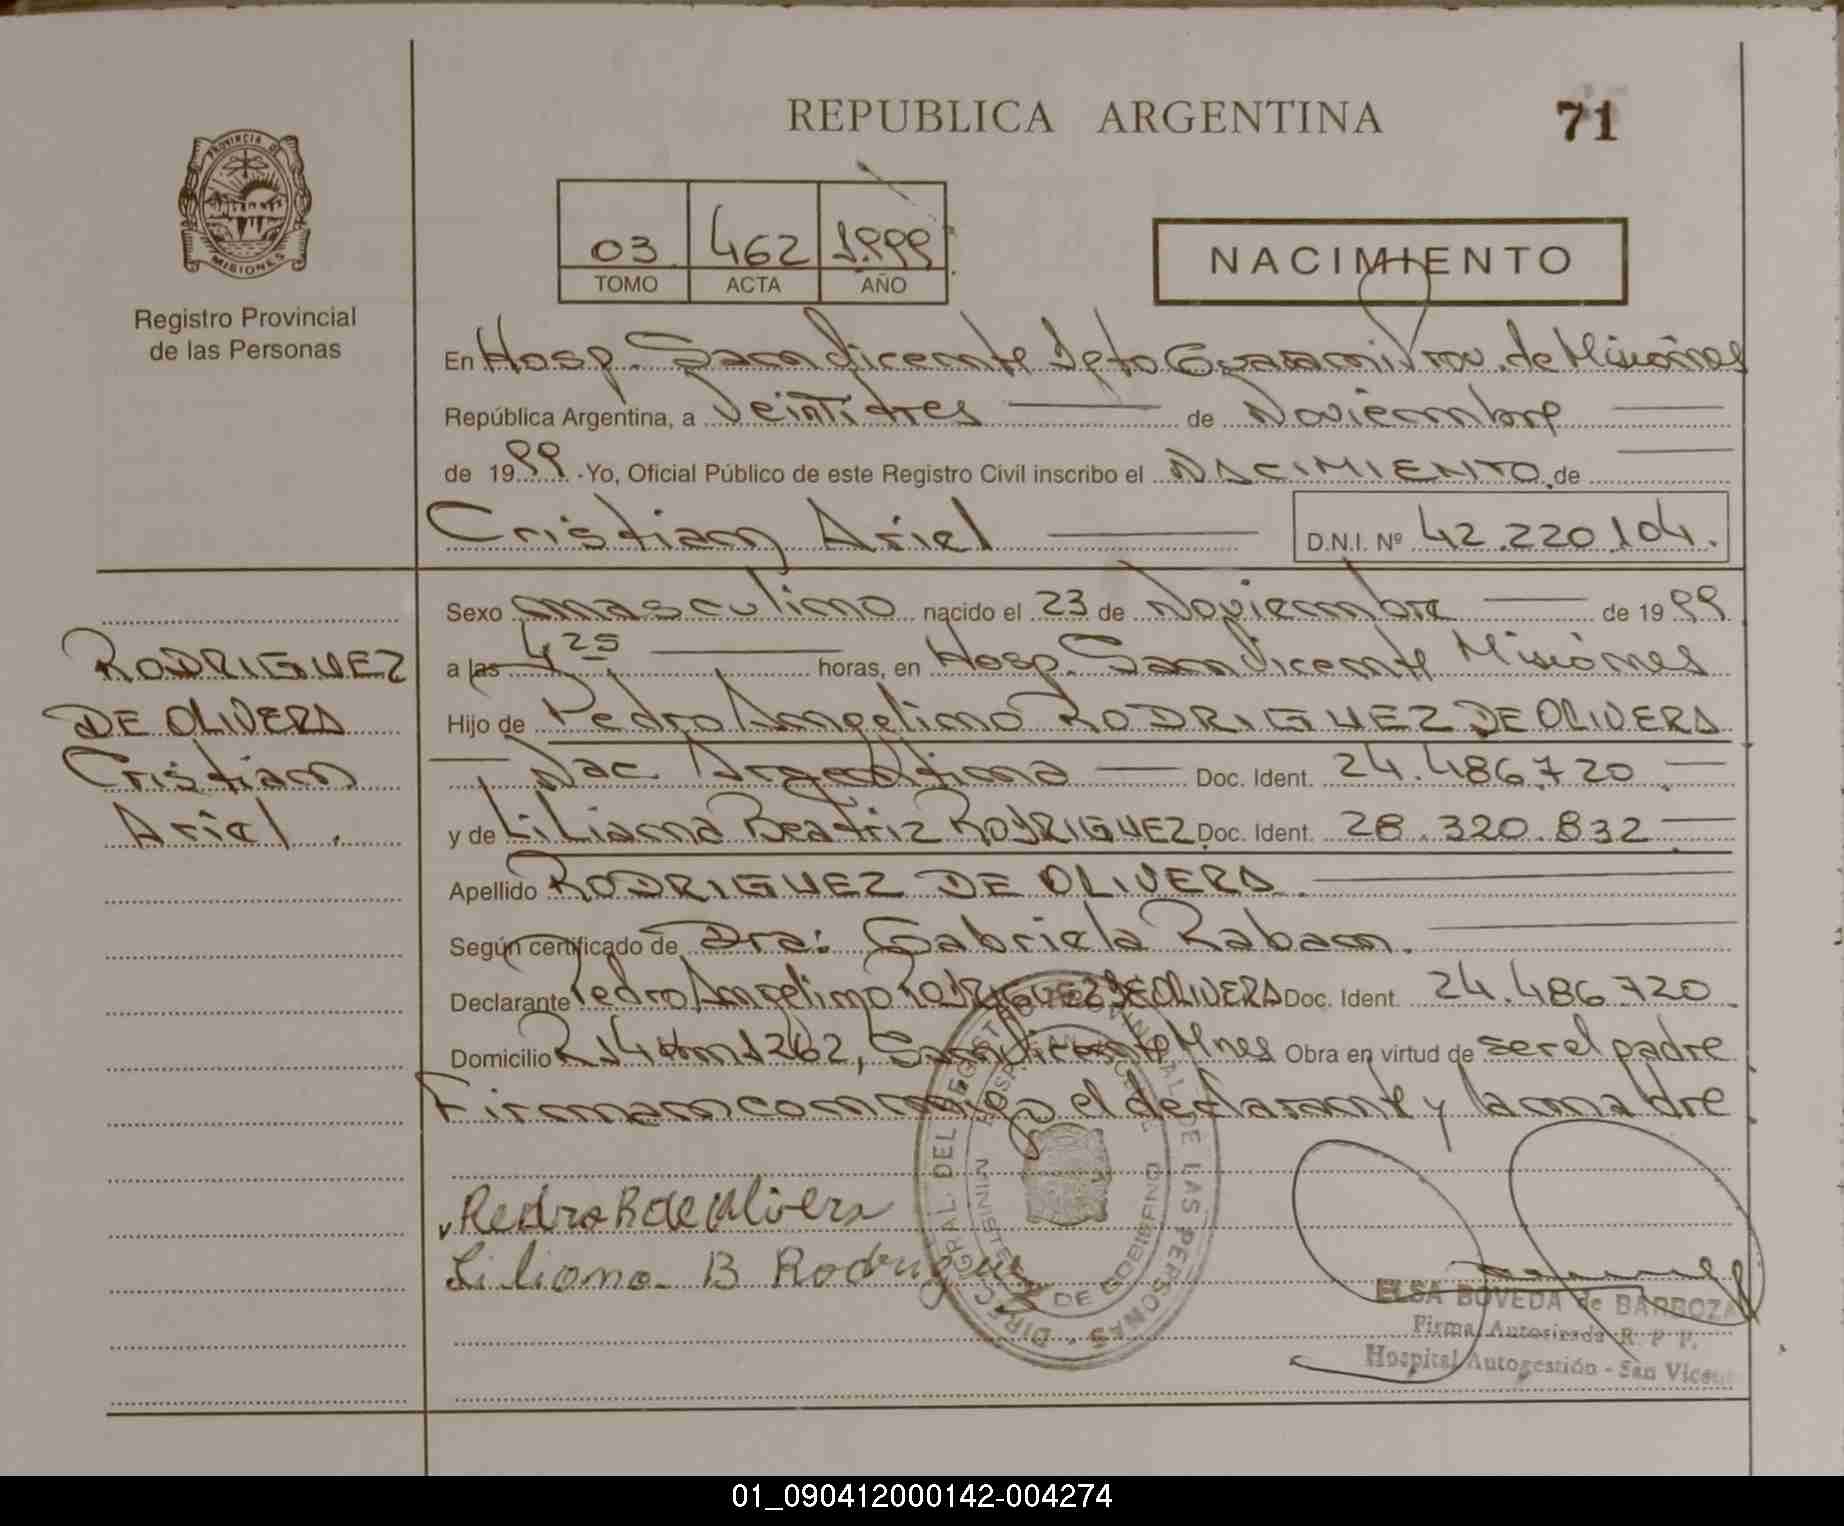 REPUBLICA ARGENTINA
71
PROVINCIA DE
MISIONES
Registro Provincial
de las Personas
03 462 1.999
TOMO ACTA AÑO
NACIMIENTO
En Hosp. San Vicente Dpto Guarani Prov. de Misiones
República Argentina, a Veintidres de Noviembre
de 1999 .-Yo, Oficial Público de este Registro Civil inscribo el NACIMIENTO de
Cristian Ariel D.N.I. Nº 42.220.104.
RODRIGUEZ
DE OLIVERA
Cristian
Ariel.
Sexo masculino nacido el 23 de Noviembre de 1999
a las 4,25 horas, en Hosp. San Vicente Misiones
Hijo de Pedro Angelino RODRIGUEZ DE OLIVERA
Nac. Argentina Doc. Ident. 24.486.720
y de Liliana Beatriz RODRIGUEZ Doc. Ident. 28.320.832
Apellido RODRIGUEZ DE OLIVERA.
Según certificado de Dra: Gabriela Raban.
Declarante Pedro Angelino RODRIGUEZ DE OLIVERA Doc. Ident. 24.486.720
Domicilio R 14 Km 1262, San Vicente Mnes Obra en virtud de ser el padre
Firman conmigo el declarante y la madre
Pedro R de Olivera
Liliana B Rodriguez
DIREC. GRAL DEL REGISTRO PROVINCIAL DE LAS PERSONAS
HOSP. SAN VICENTE
DE GOBIERNO
ELSA BOVEDA de BARBOZA
Firma Autorizada R. P. P.
Hospital Autogestión - San Vicente
01_090412000142-004274